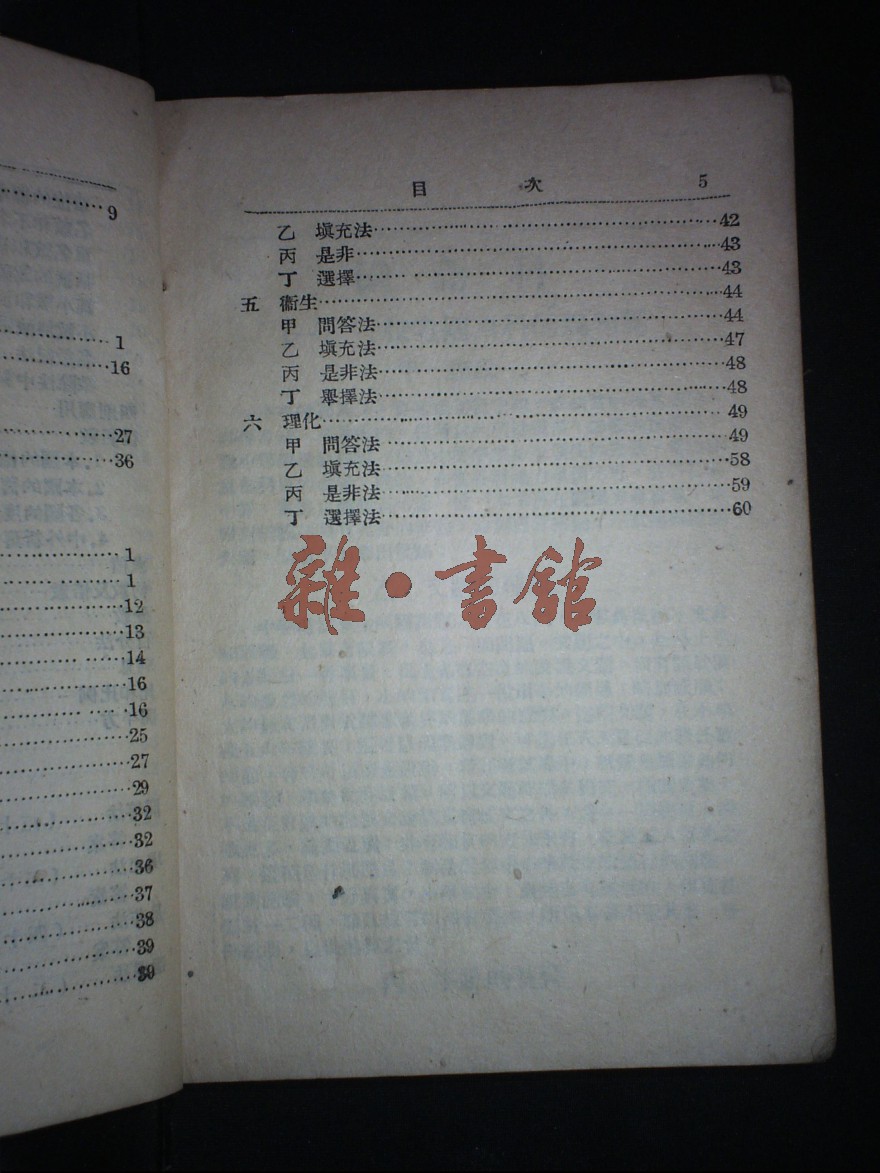 9
1
16
27
36
1
1
12
13
14
16
16
25
27
29
32
32
36
37
38
39
39
目 次 5
乙 填充法 42
丙 是非 43
丁 選擇 43
五 衞生 44
甲 問答法 44
乙 填充法 47
丙 是非法 48
丁 舉擇法 48
六 理化 49
甲 問答法 49
乙 填充法 58
丙 是非法 59
丁 選擇法 60
雜·書館